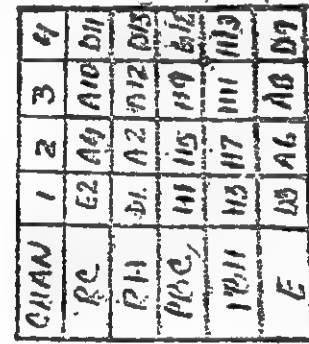 CHAN 1 2 3 4
RC E2 A4 A10 D11
RH D1 A2 A12 D13
PBC H1 H5 H9
H3 H7 H11 H13
E A6 A8 D9